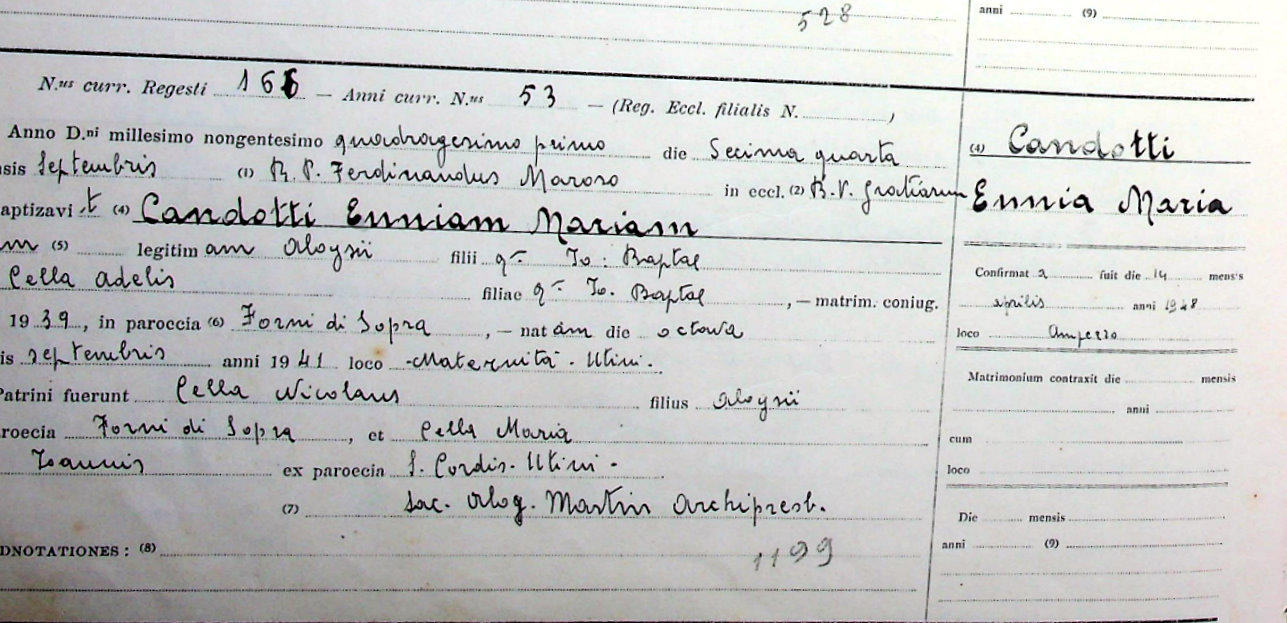 528
anni (9)
N.us curr. Regesti 166 — Anni curr. N.us 53 — (Reg. Eccl. filialis N. )
Anno D.ni millesimo nongentesimo quadragesimo primo die Decima quarta
sis Septembris (1) R. P. Ferdinandus Maroso in eccl. (2) B. V. Gratiarum
aptizavi t (4) Candotti Enniam Mariam
m (5) legitim am Aloysii filii q.m Io: Baptae
Cella Adelis filiae q.m Io. Baptae, — matrim. coniug.
1939, in paroccia (6) Forni di Sopra, — nat am die octava
is septembris anni 1941 loco Maternità - Utini.
Patrini fuerunt Cella Nicolaus filius Aloysii
roecia Forni di Sopra, et Cella Maria
Ioannis ex paroecia S. Cordis - Utini -
(7) Sac. Aloy. Martin Archipresb.
DNOTATIONES: (8)
1199
(4) Candotti
Ennia Maria
Confirmat a fuit die 14 mensis
aprilis anni 1948
loco Ampezzo
Matrimonium contraxit die mensis
anni
cum
loco
Die mensis
anni (9)